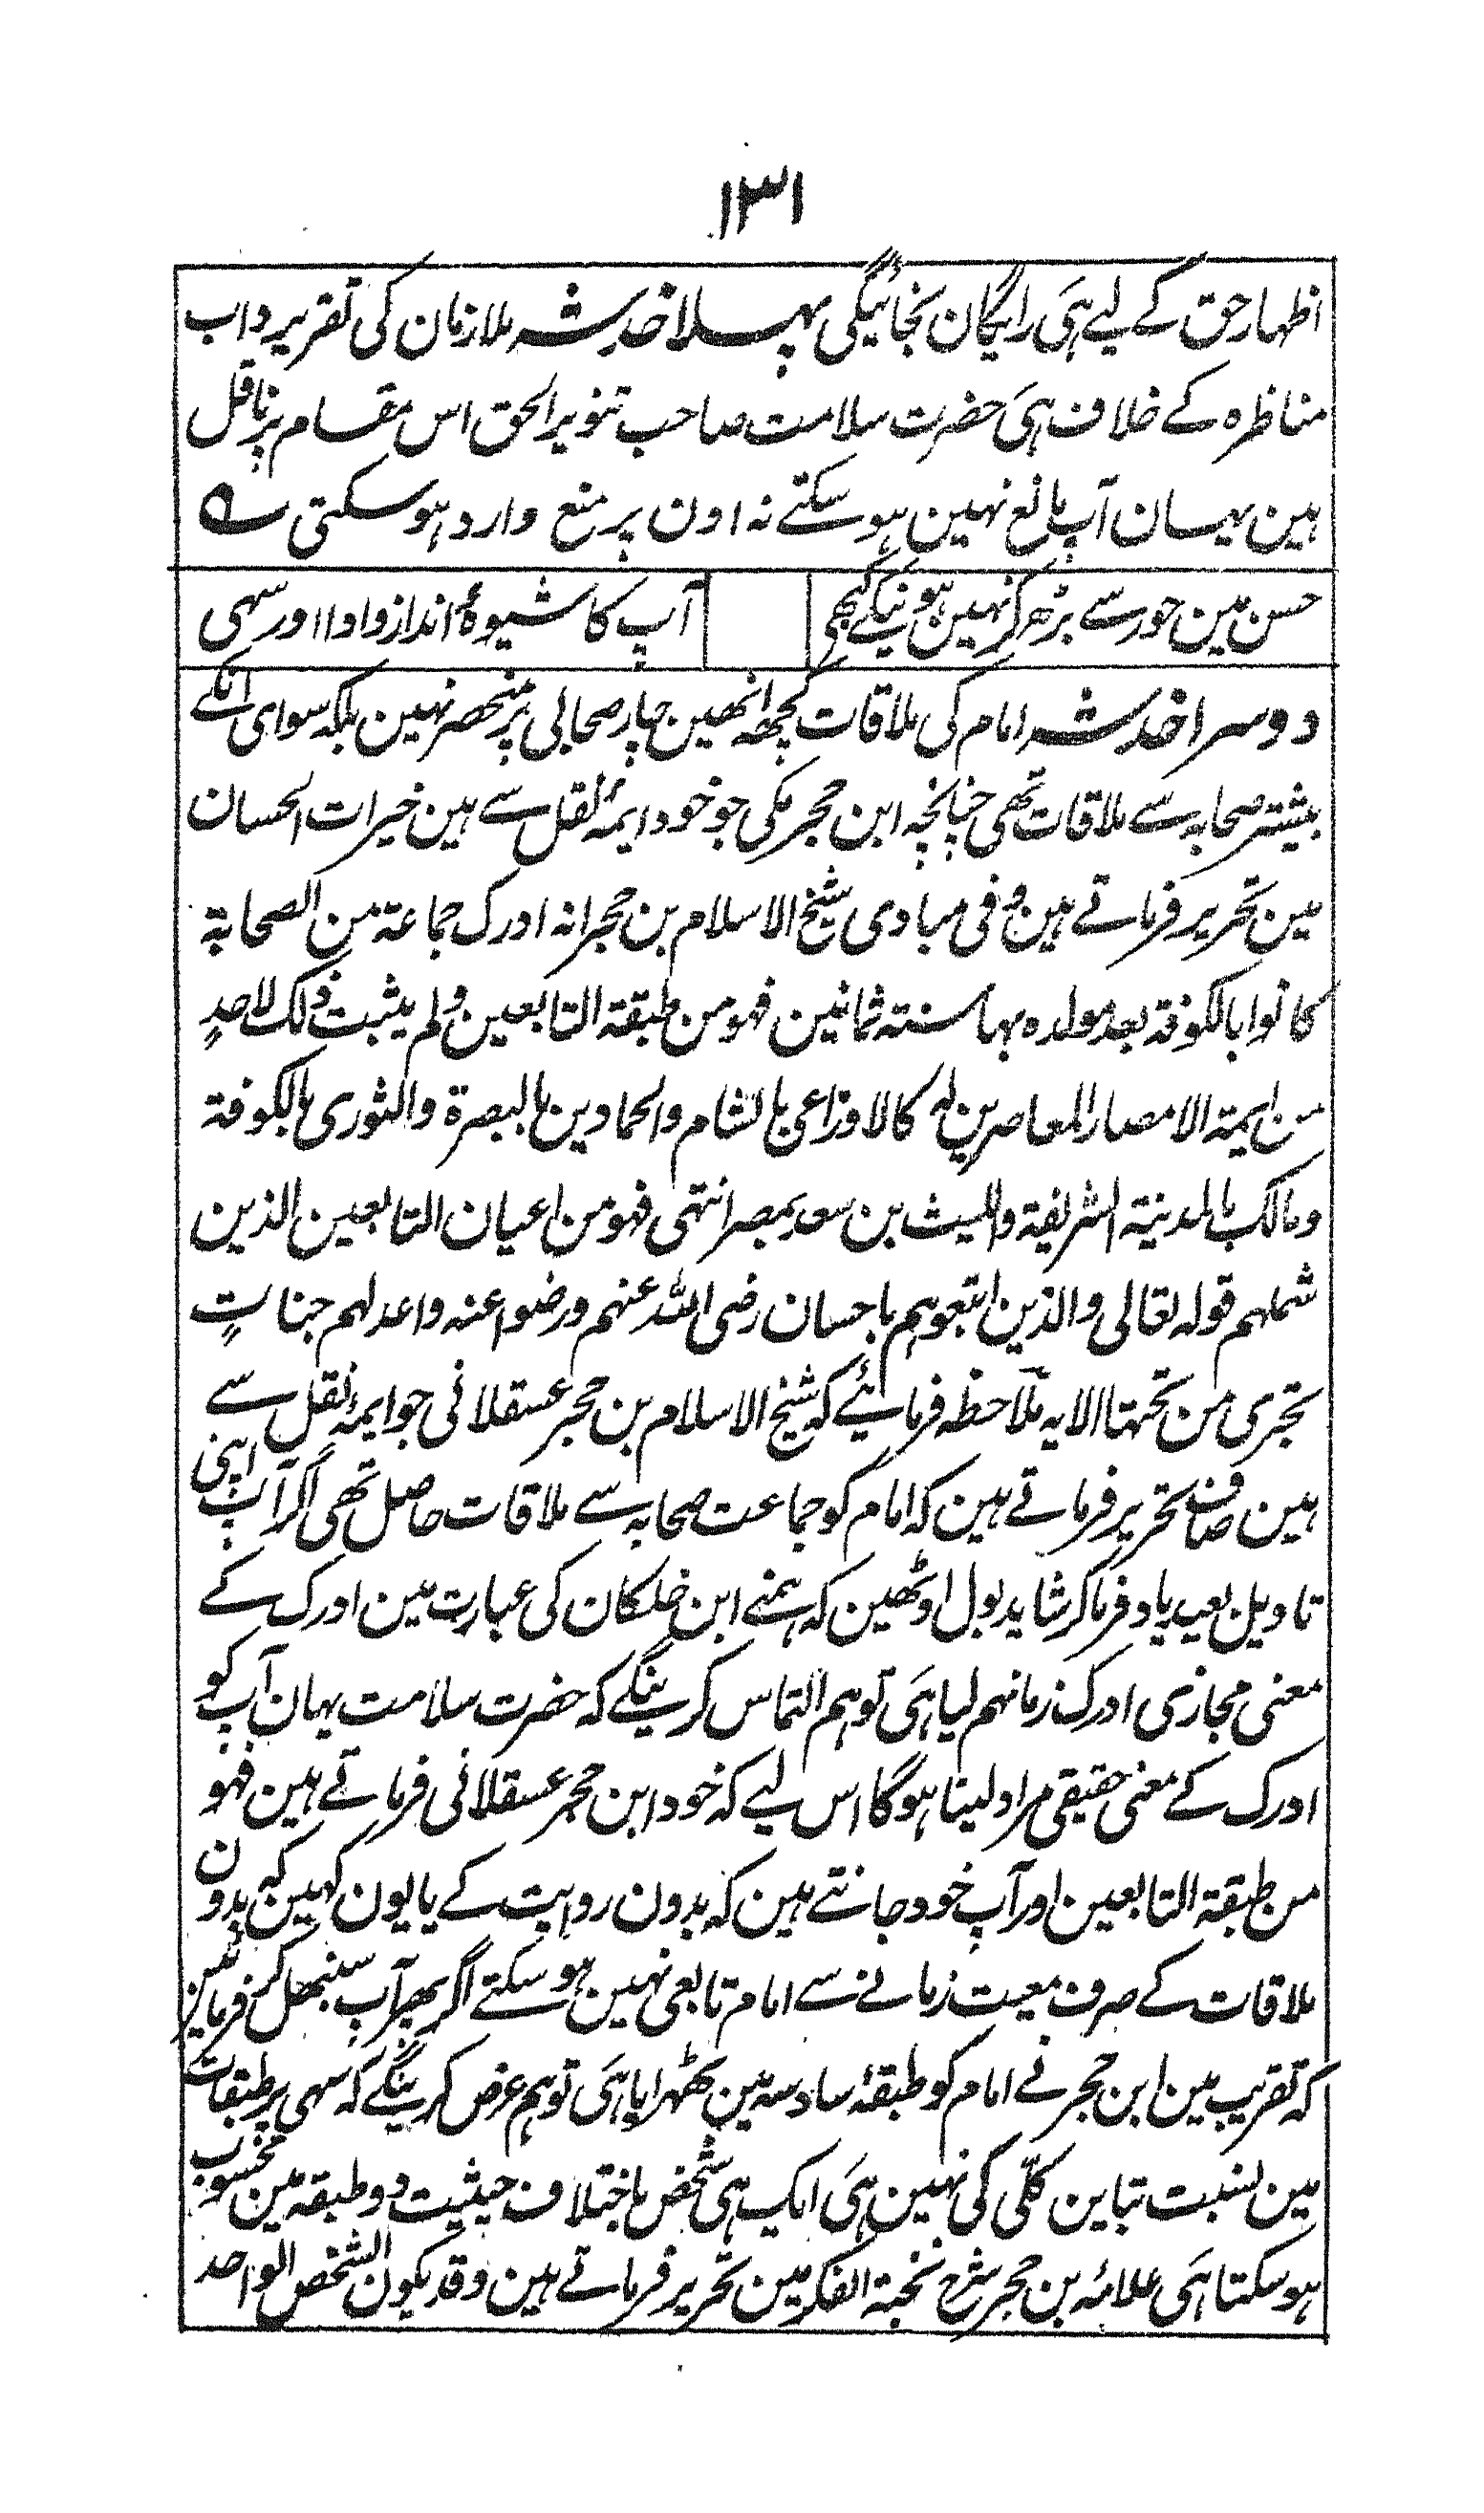 ۱۳۱
اظہار حق کے لیے ہی رایگان نجائیگی پہلا خدشہ ملازمان کی تقریر داب
مناظرہ کے خلاف ہی حضرت سلامت صاحب تنویر الحق اس مقام پر ناقل
ہین یہان آپ مانع نہین ہو سکتے نہ اون پر منع وارد ہو سکتی ہے
حسن مین حور سے بڑھکر نہین ہونیکے کبھی
آپ کا شیوۂ انداز و ادا اور سہی
دوسرا خدشہ امام کی ملاقات کچھ انھین چار صحابی پر منحصر نہین بلکہ سوای انکے
بیشتر صحابہ سے ملاقات تھی چنانچہ ابن حجر مکی جو خود ایمۂ نقل سے ہین خیرات الحسان
مین تحریر فرماتے ہین و فی مبادی شیخ الاسلام بن حجر انہ ادرک جماعۃ من الصحابۃ
کانوا بالکوفۃ بعد مولدہ بہا سنتہ ثمانین فہو من طبقۃ التابعین و لم یثبت ذلک لاحدٍ
من ایمۃ الامصار المعاصرین لہ کالاوزاعی بالشام والحمادین بالبصرۃ والثوری بالکوفۃ
و مالک بالمدینۃ الشریفۃ واللیث بن سعد بمصر انتہی فہو من اعیان التابعین الذین
شملہم قولہ تعالی والذین اتبعوہم باحسان رضی اللہ عنہم و رضوا عنہ واعد لہم جناتٍ
تجری من تحتہا الایہ ملاحظہ فرمائیے کہ شیخ الاسلام بن حجر عسقلانی جو ایمۂ نقل سے
ہین صاف تحریر فرماتے ہین کہ امام کو جماعت صحابہ سے ملاقات حاصل تھی اگر آپ اپنی
تاویل بعید یاد فرما کر شاید بول اوٹھین کہ ہمنے ابن خلکان کی عبارت مین ادرک کے
معنی مجازی ادرک زمانہم لیا ہی تو ہم التماس کرینگے کہ حضرت سلامت یہان آپ کو
ادرک کے معنی حقیقی مراد لینا ہوگا اس لیے کہ خود ابن حجر عسقلانی فرماتے ہین فہو
من طبقۃ التابعین اور آپ خود جانتے ہین کہ بدون رویت کے یا یون کہین کہ بدون
ملاقات کے صرف معیت زمانے سے امام تابعی نہین ہو سکتے اگر پھر آپ سنبھل کر فرمائین
کہ تقریب مین ابن حجر نے امام کو طبقۂ سادسہ مین ٹھہرایا ہی تو ہم عرض کرینگے کہ سہی پر طبقات
مین نسبت تباین کلّی کی نہین ہی ایک ہی شخص باختلاف حیثیت دو طبقہ مین محسوب
ہو سکتا ہی علامۂ بن حجر شرح نخبۃ الفکر مین تحریر فرماتے ہین وقد یکون الشخص الواحد